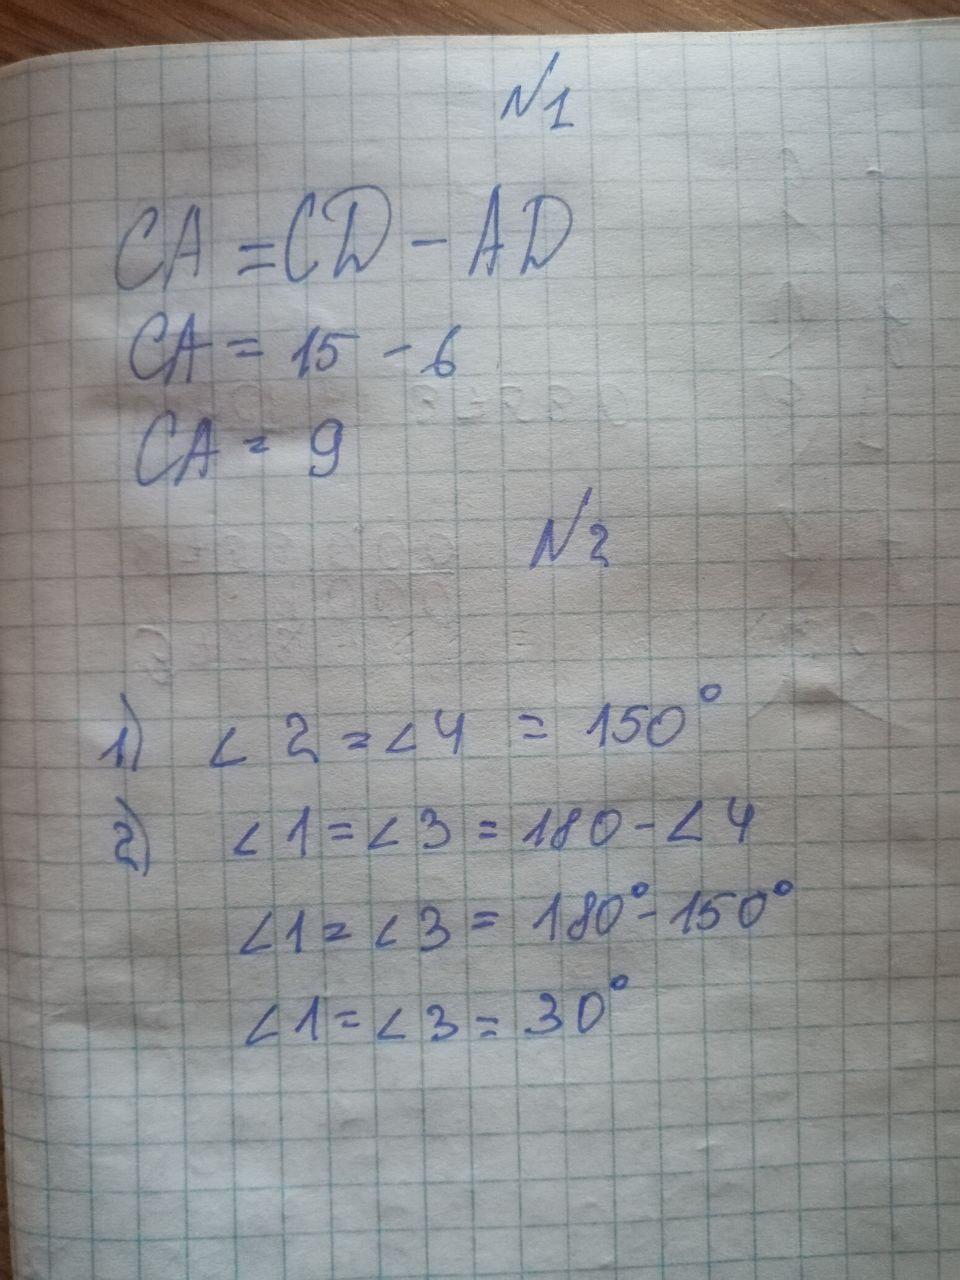 N1
CA = CD - AD
CA = 15 - 6
CA = 9
N2
1) ∠2 = ∠4 = 150°
2) ∠1 = ∠3 = 180 - ∠4
∠1 = ∠3 = 180° - 150°
∠1 = ∠3 = 30°